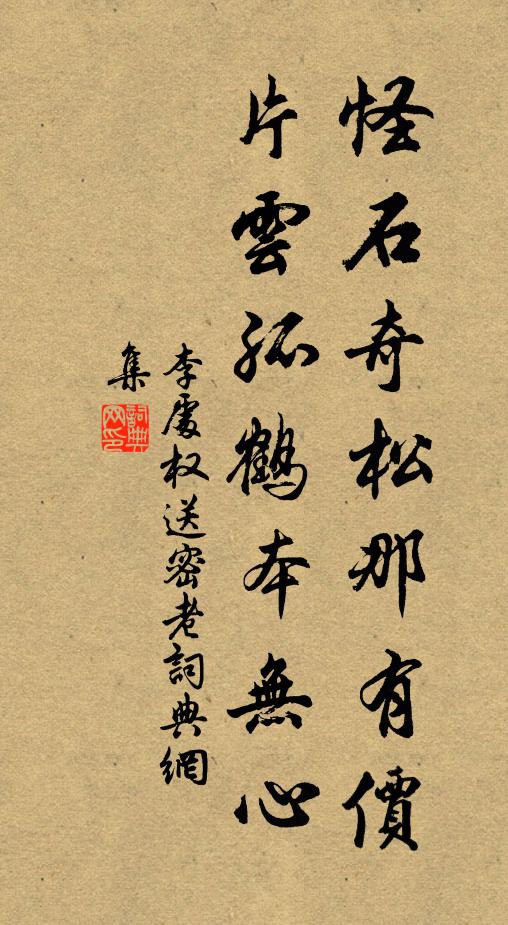 怪石奇松那有價
片雲孤鶴本無心
李處权送密老詞典網
集
詞典
网印